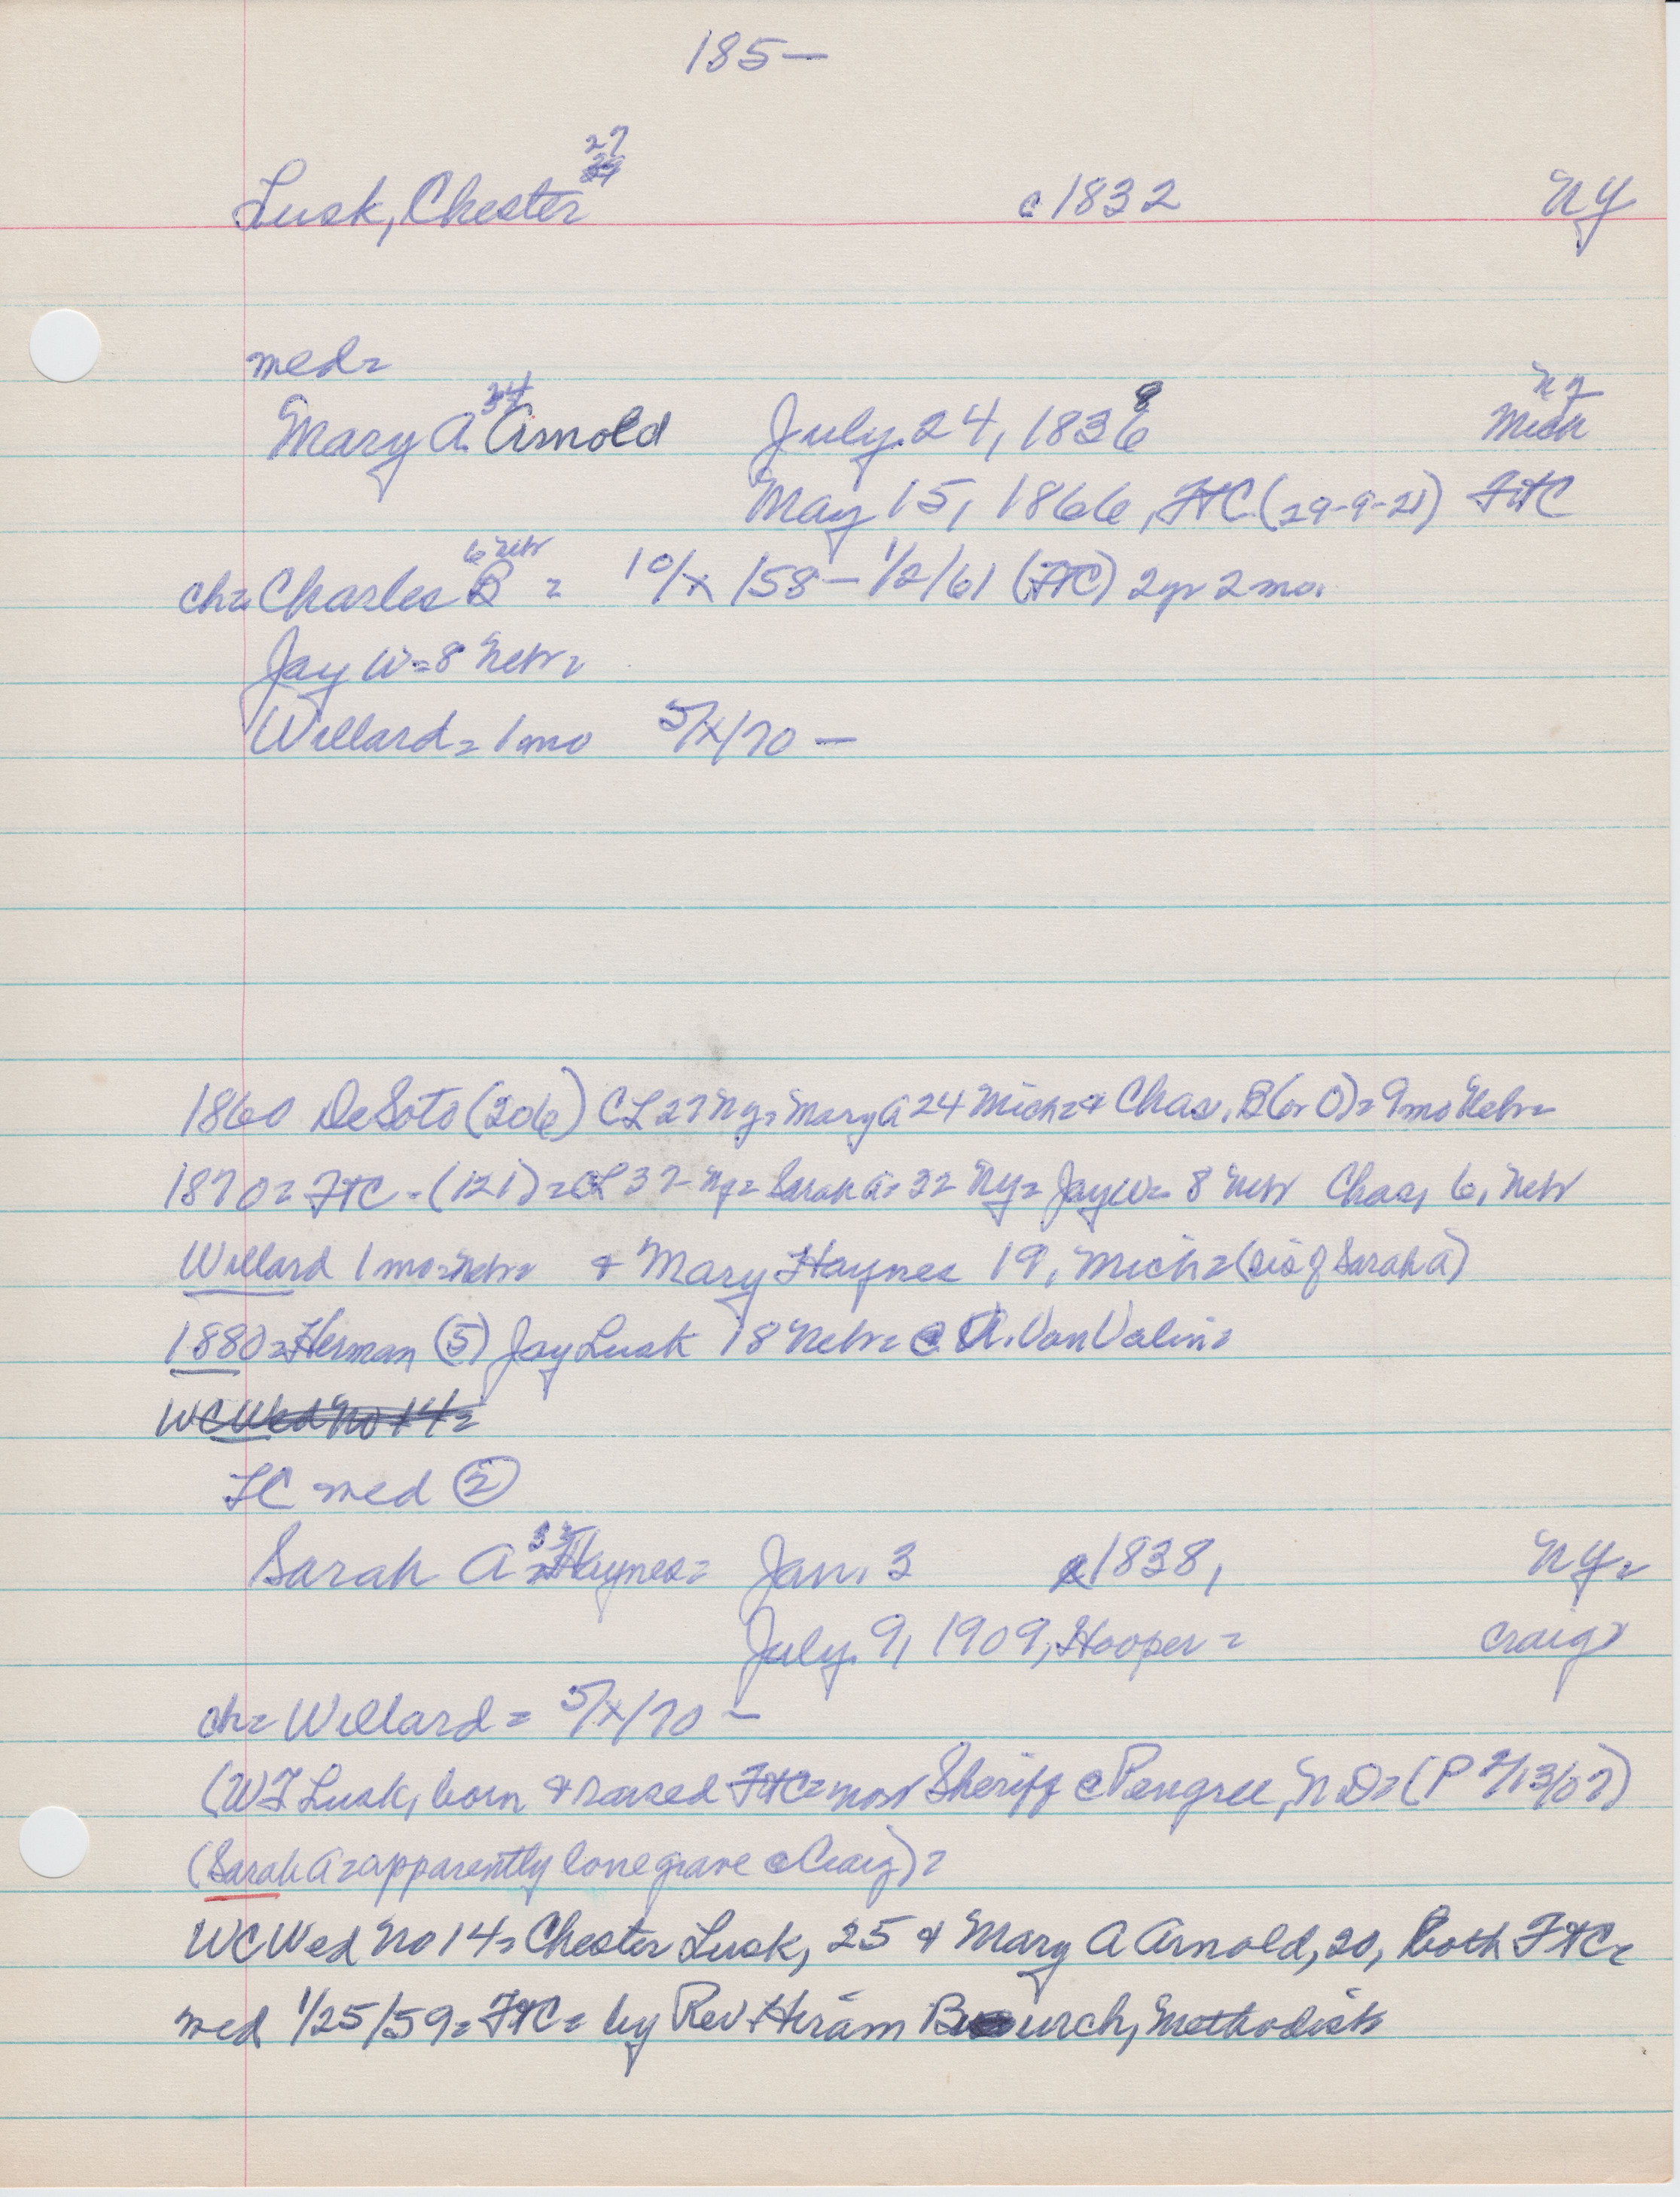 185—
27
Lusk, Chester c1832 NY
med=
24 8 NY
Mary A. Arnold July 24, 1836 Mich
May 15, 1866, FtC (29-9-21) FtC
6 Nebr
ch= Charles B = 10/x/58 – 1/2/61 (FtC) 2yr 2mo.
Jay W = 8 Nebr =
Willard = 1mo 5/x/70 —
1860 DeSoto (206) CL 27 Ny = Mary A 24 Mich = & Chas. B (or O) = 9mo Nebr =
1870 = FtC - (121) = CL 37 - Ny = Sarah A = 32 Ny = Jay W = 8 Nebr Chas, 6, Nebr
Willard 1 mo = Nebr = & Mary Haynes 19, Mich = (sis of Sarah A)
1880 = Herman (5) Jay Lusk 18 Nebr = @ A. Van Valin =
WC Wed No 14 =
med 2
33
Sarah A = Haynes = Jan. 3 1838, NY =
July 9, 1909, Hooper = Craig =
ch = Willard = 5/x/70 —
(WF Lusk, born & raised FtC = now Sheriff @ Pengree, ND = (P /13/07)
(Sarah A = apparently lone grave @ Craig) =
WC Wed No 14 = Chester Lusk, 25 & Mary A Arnold, 20, both FtC =
med 1/25/59 = FtC = by Rev Hiram Burch, Methodist